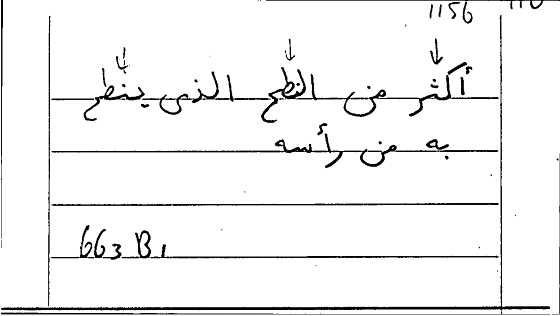 1156
أكثر من النطح الذى ينطح
به من رأسه
663 B1